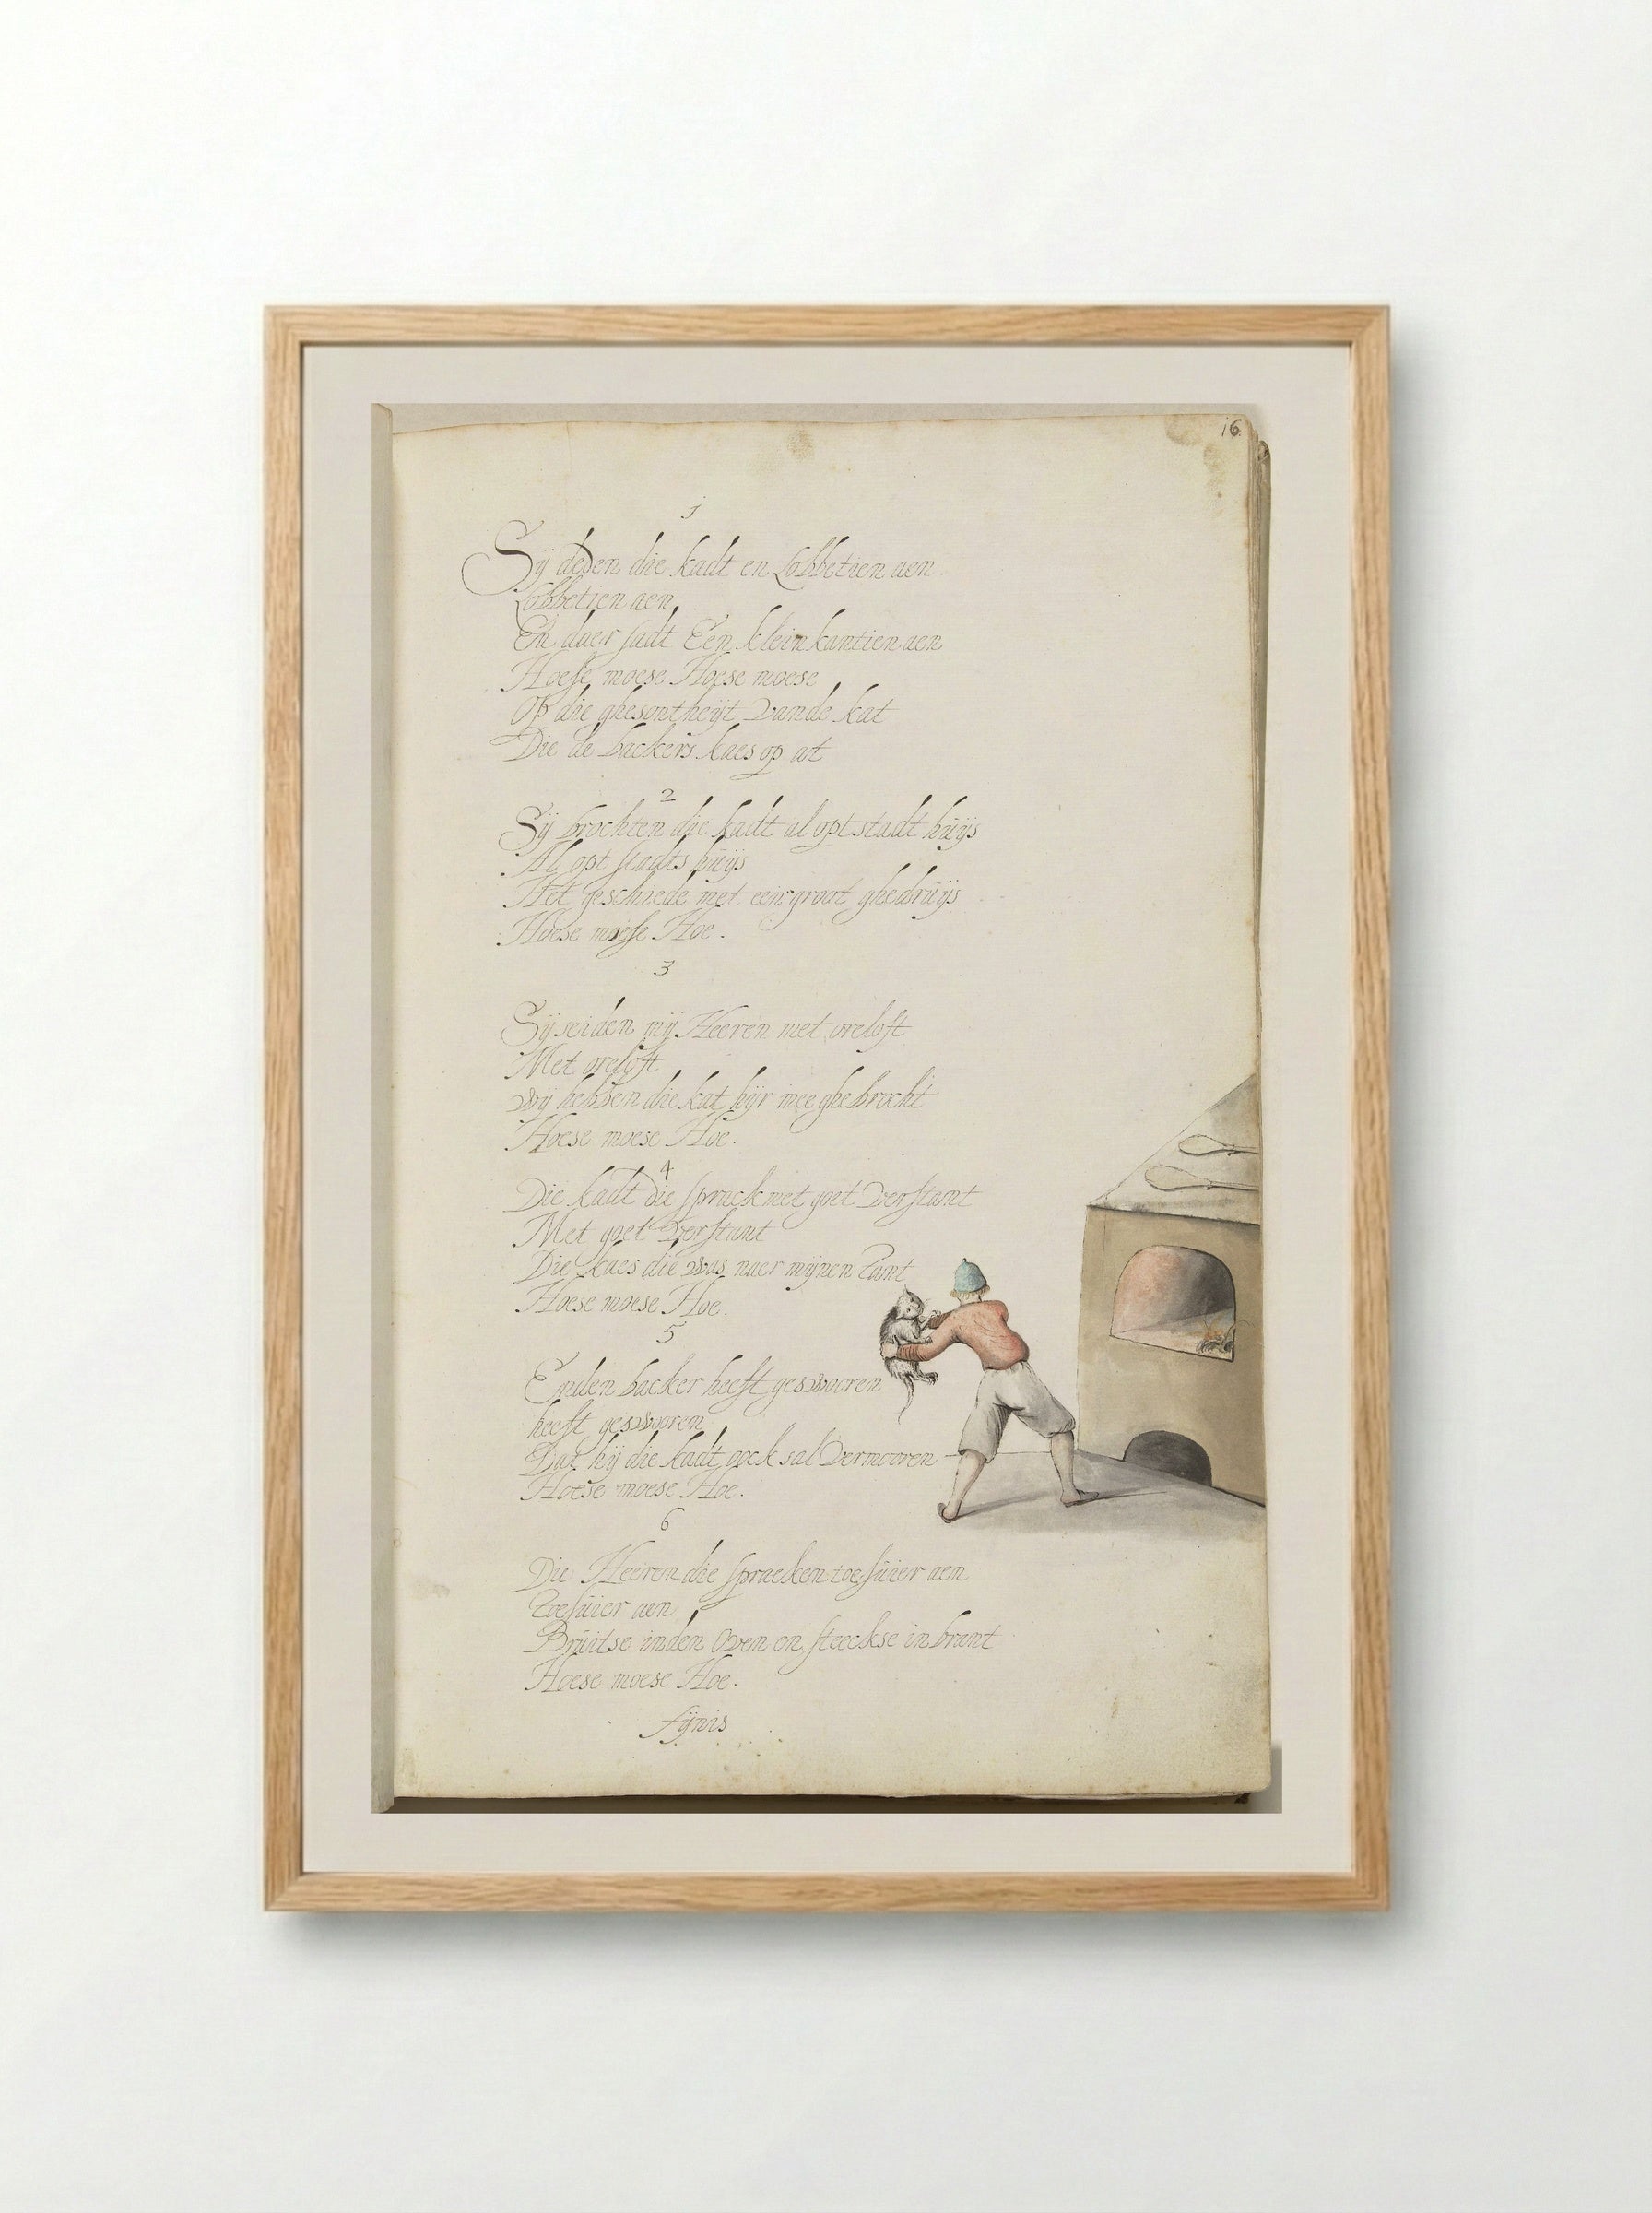 16
1
Sij deden die kadt en Lobbetien aen
Lobbetien aen
En daer sadt Een klein kantien aen
Hoese moese Hoese moese
Op die ghesontheijt vande kat
Die de backers kaes op at
2
Sij brochten die kadt al opt stadt huijs
Al opt stadts huijs
Het geschiede met een groot ghedruijs
Hoese moese Hoe.
3
Sij seiden mij Heeren met oreloft
Met oreloft
Wij hebben die kat hijr mee ghebrocht
Hoese moese Hoe.
4
Die kadt die sprack met goet verstant
Met goet verstant
Die kaes die was naer mijnen tant
Hoese moese Hoe.
5
Enden backer heeft geswooren
heeft geswooren
Dat hij die kadt oock sal vermooren
Hoese moese Hoe.
6
Die Heeren die spraeken toe suier aen
toe suier aen
Bruitse inden Oven en steeckse in brant
Hoese moese Hoe.
fijnis